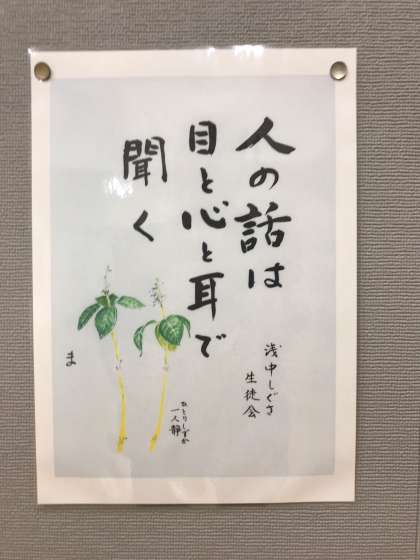 人の話は
目と心と耳で
聞く
浅中しぐさ
生徒会
ひとりしずか
一人静
ま